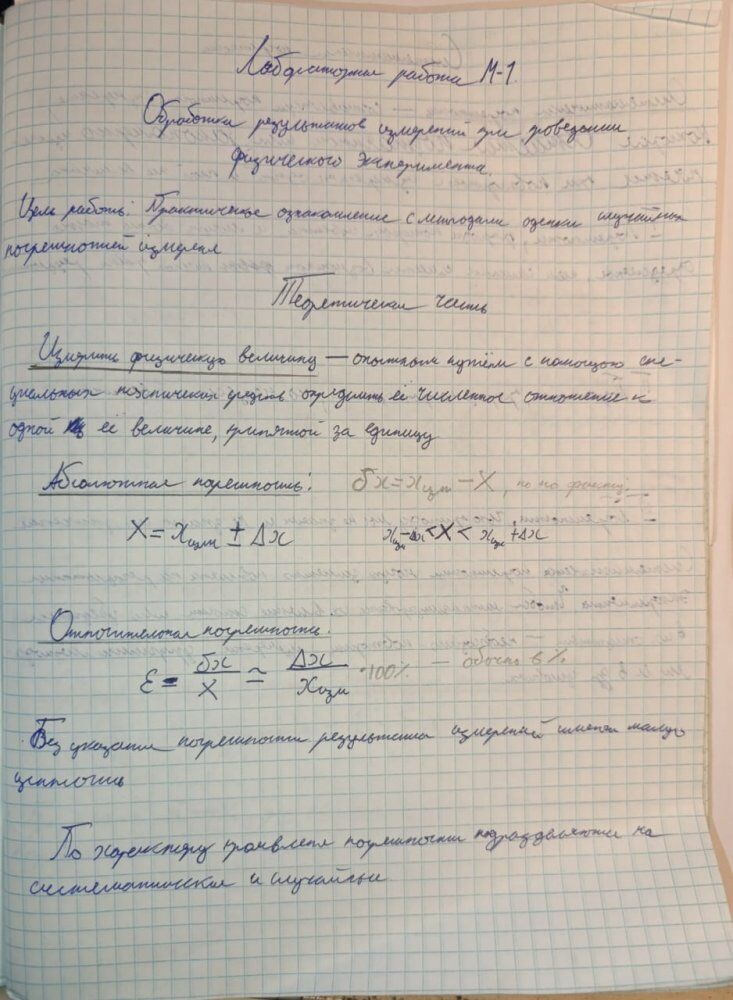 Лабораторная работа М-1.
Обработка результатов измерений при проведении
физического эксперимента.
Цель работы: Практическое ознакомление с методами оценки случайных
погрешностей измерения
Теоретическая часть
Измерить физическую величину — опытным путём с помощью спе-
циальных технических средств определить её численное отношение к
одной её величине, принятой за единицу
Абсолютная погрешность: δx = xизм − X, но по факту:
X = xизм ± Δx xизм − Δx < X < xизм + Δx
Относительная погрешность:
ε = δx/X ≃ Δx/xизм · 100% — обычно в %
Без указания погрешности результаты измерений имеют малую
ценность
По характеру проявления погрешности подразделяются на
систематические и случайные